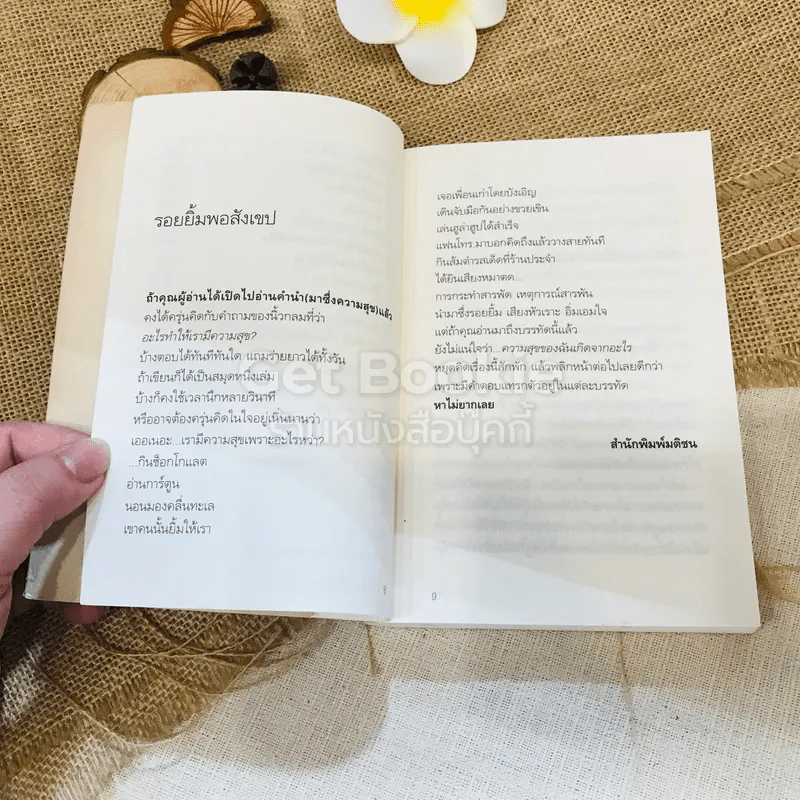 รอยยิ้มพอสังเขป
ถ้าคุณผู้อ่านได้เปิดไปอ่านคำนำ(มาซึ่งความสุข)แล้ว
คงได้ครุ่นคิดกับคำถามของนิ้วกลมที่ว่า
อะไรทำให้เรามีความสุข?
บ้างตอบได้ทันทีทันใด แถมร่ายยาวได้ทั้งวัน
ถ้าเขียนก็ได้เป็นสมุดหนึ่งเล่ม
บ้างก็คงใช้เวลานึกหลายวินาที
หรืออาจต้องครุ่นคิดในใจอยู่เนิ่นนานว่า
เออเนอะ...เรามีความสุขเพราะอะไรหว่า?
...กินช็อกโกแลต
อ่านการ์ตูน
นอนมองคลื่นทะเล
เขาคนนั้นยิ้มให้เรา
8
เจอเพื่อนเก่าโดยบังเอิญ
เดินจับมือกันอย่างขวยเขิน
เล่นฮูล่าฮูปได้สำเร็จ
แฟนโทร.มาบอกคิดถึงแล้ววางสายทันที
กินส้มตำรสเด็ดที่ร้านประจำ
ได้ยินเสียงหมาตด...
การกระทำสารพัด เหตุการณ์สารพัน
นำมาซึ่งรอยยิ้ม เสียงหัวเราะ อิ่มเอมใจ
แต่ถ้าคุณอ่านมาถึงบรรทัดนี้แล้ว
ยังไม่แน่ใจว่า...ความสุขของฉันเกิดจากอะไร
หยุดคิดเรื่องนี้สักพัก แล้วพลิกหน้าต่อไปเลยดีกว่า
เพราะมีคำตอบแทรกตัวอยู่ในแต่ละบรรทัด
หาไม่ยากเลย
สำนักพิมพ์มติชน
9
Get Bookie
ร้านหนังสือบุ๊คกี้